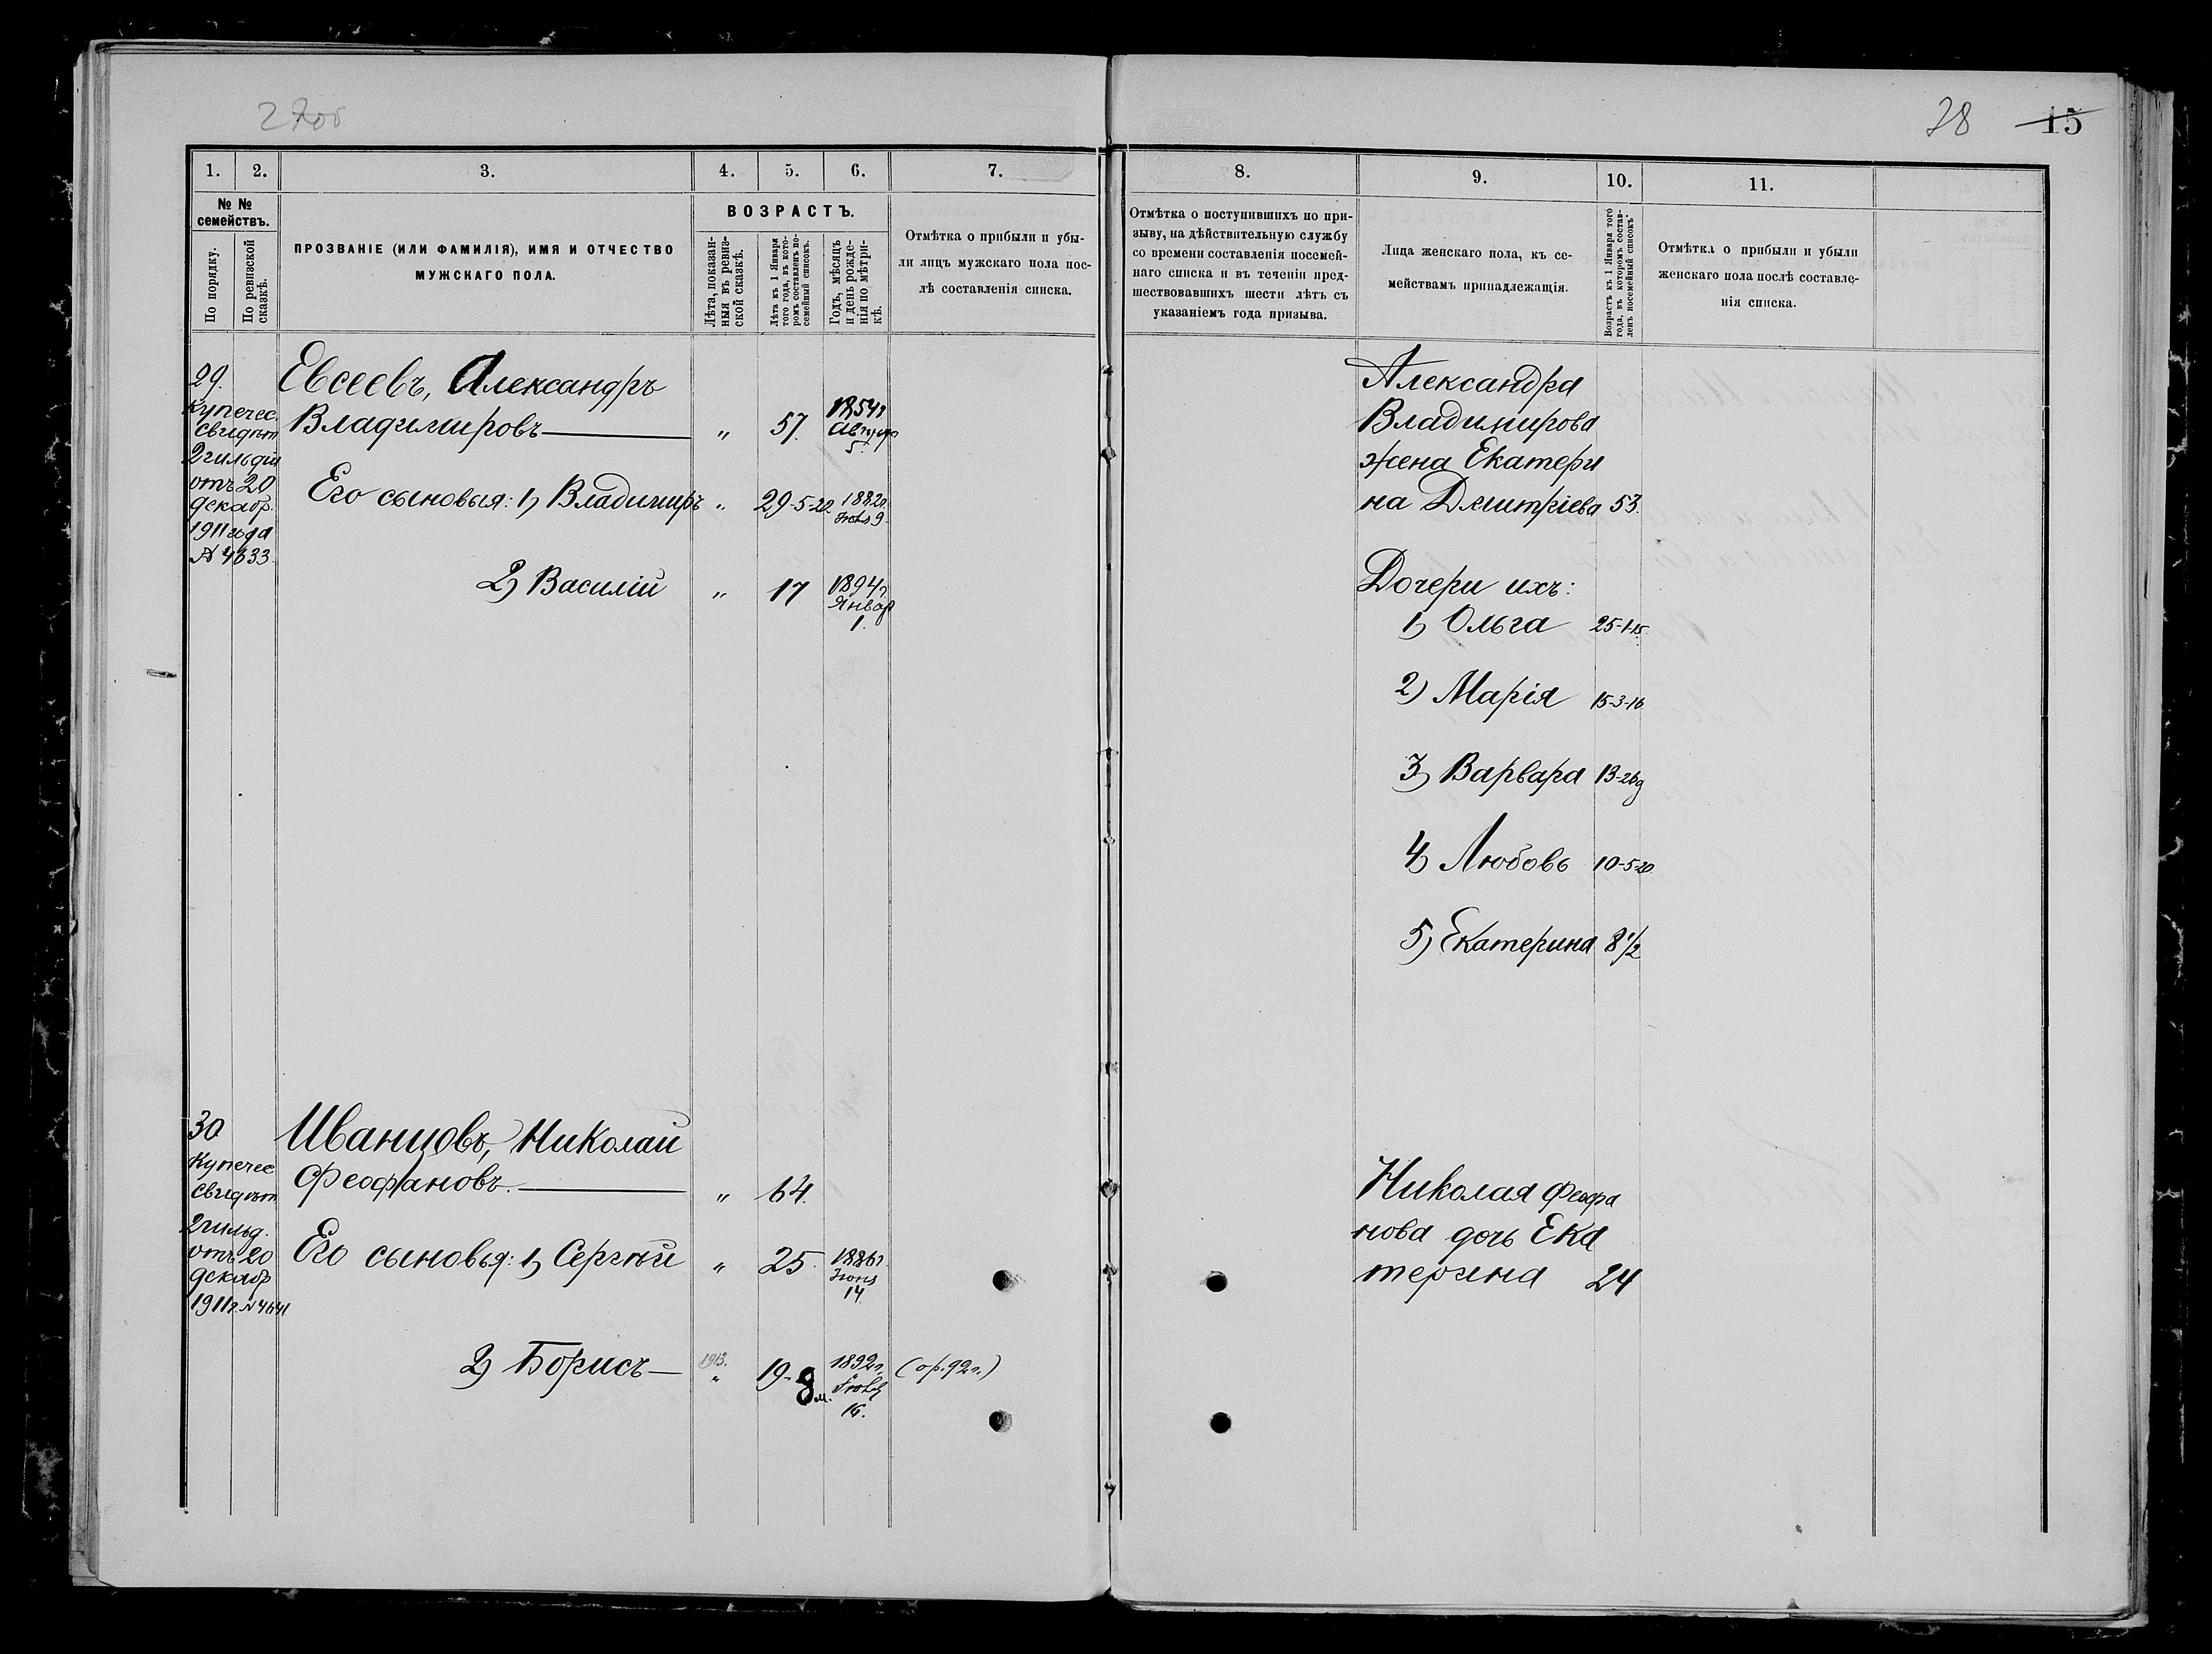 28 15
1. 2. 3. 4. 5. 6. 7.
№ №
семействъ.
По порядку.
По ревизской
сказкѣ.
ПРОЗВАНІЕ (ИЛИ ФАМИЛІЯ), ИМЯ И ОТЧЕСТВО
МУЖСКАГО ПОЛА.
ВОЗРАСТЪ.
Лѣта, показан-
ныя въ ревиз-
ской сказкѣ.
Лѣта къ 1 Января
того года, въ кото-
ромъ составленъ по-
семейный списокъ.
Годъ, мѣсяцъ
и день рожде-
нія по метри-
кѣ.
Отмѣтка о прибыли и убы-
ли лицъ мужскаго пола пос-
лѣ составленія списка.
29.
Купечес.
свидѣт
2 гильдіи
отъ 20
декабр.
1911 года
№ 4633.
Евсеевъ, Александръ
Владимировъ — „ 57. 1854 г. Августа 5.
Его сыновья: 1) Владимиръ „ 29-5-22 1882 г. 9.
2) Василій „ 17 1894 г. Январ 1.
30
Купечес
свидѣт
2 гильд.
отъ 20
декабр
1911 г. № 4641
Иванцовъ, Николай
Феофановъ. — „ 64.
Его сыновья: 1) Сергѣй „ 25. 1886 г. 14
2) Борисъ — 1913. „ 19-8 м. 1892 г. 16. (ор. 92 г.)
8. 9. 10. 11.
Отмѣтка о поступившихъ по при-
зыву, на дѣйствительную службу
со времени составленія посемей-
наго списка и въ теченіи пред-
шествовавшихъ шести лѣтъ съ
указаніемъ года призыва.
Лица женскаго пола, къ се-
мействамъ принадлежащія.
Возрастъ къ 1 Января того
года, въ которомъ состав-
ленъ посемейный списокъ.
Отмѣтка о прибыли и убыли
женскаго пола послѣ составле-
нія списка.
Александра
Владимирова
жена Екатери
на Дмитріева 53.
Дочери ихъ:
1) Ольга 25-1-15.
2) Марія 15-3-16
3) Варвара 13-
4) Любовь 10-5-20
5) Екатерина 8 1/2
Николая Феофа
нова дочь Ека
терина 24